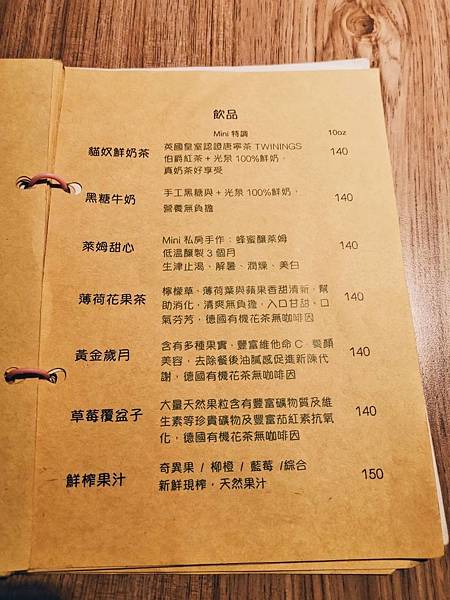 飲品
Mini 特調 10oz
貓奴鮮奶茶 英國皇室認證唐寧茶 TWININGS 140
伯爵紅茶 + 光泉100%鮮奶，
真奶茶好享受
黑糖牛奶 手工黑糖與 + 光泉 100%鮮奶， 140
營養無負擔
萊姆甜心 Mini 私房手作：蜂蜜釀萊姆 140
低溫釀製 3 個月
生津止渴、解暑、潤燥、美白
薄荷花果茶 檸檬草、薄荷葉與蘋果香甜清新，幫 140
助消化，清爽無負擔，入口甘甜，口
氣芬芳，德國有機花茶無咖啡因
黃金歲月 含有多種果實，豐富維他命 C，養顏 140
美容，去除餐後油膩感促進新陳代
謝，德國有機花茶無咖啡因
草莓覆盆子 大量天然果粒含有豐富礦物質及維 140
生素等珍貴礦物及豐富茄紅素抗氧
化，德國有機花茶無咖啡因
鮮榨果汁 奇異果 / 柳橙 / 藍莓 /綜合 150
新鮮現榨，天然果汁